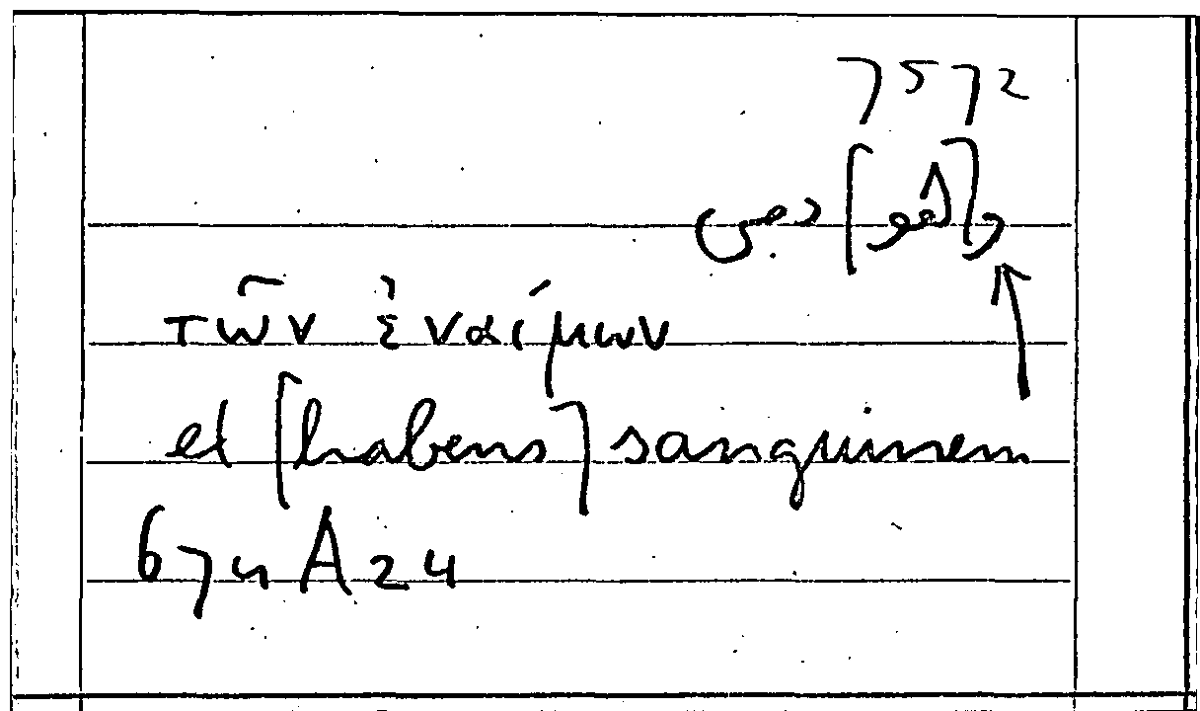 7572
τῶν ἐναίμων
et [habens] sanguinem
674A24